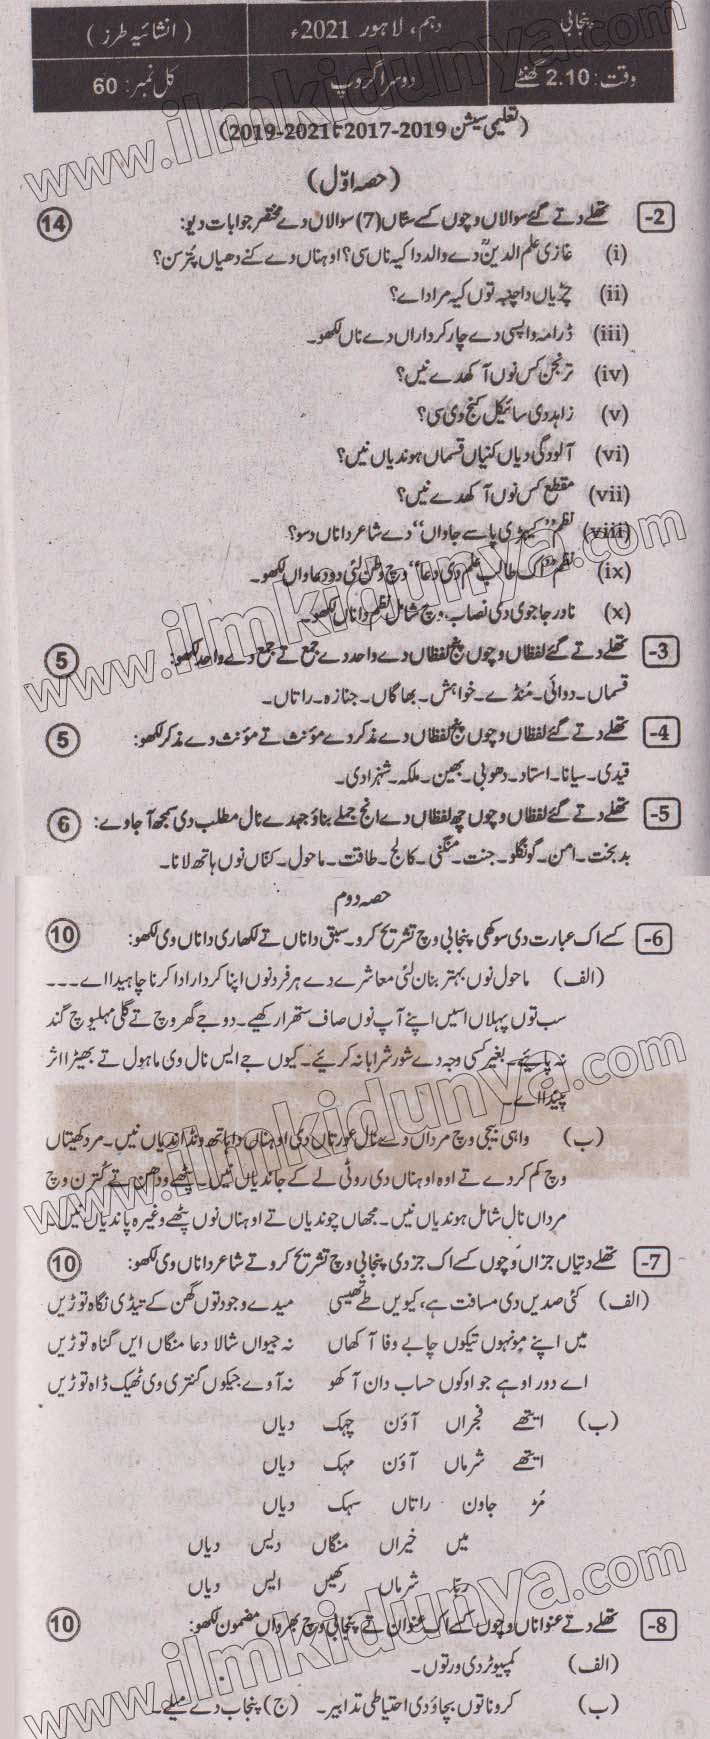 پنجابی
دہم، لاہور 2021ء
(انشائیہ طرز)
وقت: 2.10 گھنٹے
دوسرا گروپ
کل نمبر: 60
(تعلیمی سیشن 2019-2017 تا 2021-2019)
(حصہ اوّل)
2- تھلے دتے گئے سوالاں وچوں کسے ستاں (7) سوالاں دے مختصر جوابات دیو: 14
(i) غازی علم الدینؒ دے والد دا کیہ ناں سی؟ اوہناں دے کنے دھیاں پتر سن؟
(ii) چڑیاں دا چنبہ توں کیہ مراد اے؟
(iii) ڈرامہ واپسی دے چار کرداراں دے ناں لکھو۔
(iv) ترنجن کس نوں آکھدے نیں؟
(v) زاہد دی سائیکل کنج دی سی؟
(vi) آلودگی دیاں کنیاں قسماں ہوندیاں نیں؟
(vii) مقطع کس نوں آکھدے نیں؟
(viii) نظم "کیہڑی پاسے جاواں" دے شاعر دا ناں دسو؟
(ix) نظم "اک طالب علم دی دعا" وچ وطن لئی دو دعاواں لکھو۔
(x) نادر جاجوی دی نصاب وچ شامل نظم دا ناں لکھو۔
3- تھلے دتے گئے لفظاں وچوں پنج لفظاں دے واحد دے جمع تے جمع دے واحد لکھو: 5
قسماں۔ دوائی۔ مُنڈے۔ خواہش۔ بھاگاں۔ جنازہ۔ راتاں۔
4- تھلے دتے گئے لفظاں وچوں پنج لفظاں دے مذکر دے مؤنث تے مؤنث دے مذکر لکھو: 5
قیدی۔ سیانا۔ استاد۔ دھوبی۔ بھین۔ ملکہ۔ شہزادی۔
5- تھلے دتے گئے لفظاں وچوں چھ لفظاں دے انج جملے بناؤ جہدے نال مطلب دی سمجھ آجاوے: 6
بدبخت۔ امن۔ گونگلو۔ جنت۔ منگنی۔ کالج۔ طاقت۔ ماحول۔ کنّاں نوں ہاتھ لانا۔
حصہ دوم
6- کسے اک عبارت دی سوکھی پنجابی وچ تشریح کرو۔ سبق دا ناں تے لکھاری دا ناں وی لکھو: 10
(الف) ماحول نوں بہتر بنان لئی معاشرے دے ہر فرد نوں اپنا کردار ادا کرنا چاہیدا اے ۔۔۔
سب توں پہلاں اسیں اپنے آپ نوں صاف ستھرا رکھیے۔ دوجے گھر وچ تے گلی محلیوچ گند
نہ پائیے۔ بغیر کسی وجہ دے شور شرابا نہ کرئیے۔ کیوں جے ایس نال وی ماحول تے بھیڑا اثر
پیندا اے۔
(ب) واہی بیجی وچ مرداں دے نال عورتاں دی اوہناں دا ہاتھ ونڈاندیاں نیں۔ مرد کھیتاں
وچ کم کردے تے اوہ اوہناں دی روٹی لے کے جاندیاں نیں۔ پٹھے ودھن تے کترن وچ
مرداں نال شامل ہوندیاں نیں۔ مجھاں چوندیاں تے اوہناں نوں پٹھے وغیرہ پاندیاں نیں۔
7- تھلے دتیاں جزاں وچوں کسے اک جز دی پنجابی وچ تشریح کرو تے شاعر دا ناں وی لکھو: 10
(الف) کئی صدیں دی مسافت ہے، کیویں طے تھیسی میدے وجود توں گھن کے تیڈی نگاہ توڑیں
میں اپنے مونہوں تیکوں چا بے وفا آکھاں نہ جیواں شالا دعا منگاں ایں گناہ توڑیں
اے دور او ہے جو اوکوں حساب دان آکھو نہ آوے جیکوں گنتری وی ٹھیک ڈاہ توڑیں
(ب) ایتھے فجراں آؤن چہک دیاں
ایتھے شرماں آؤن مہک دیاں
مُڑ جاون راتاں سہک دیاں
میں خیراں منگاں دیس دیاں
ربّا شرماں رکھیں ایس دیاں
8- تھلے دتے عنواناں وچوں کسے اک عنوان تے پنجابی وچ بھرواں مضمون لکھو: 10
(الف) کمپیوٹر دی ورتوں۔
(ب) کرونا توں بچاؤ دی احتیاطی تدابیر۔ (ج) پنجاب دے میلے۔
www.ilmkidunya.com
www.ilmkidunya.com
www.ilmkidunya.com
www.ilmkidunya.com